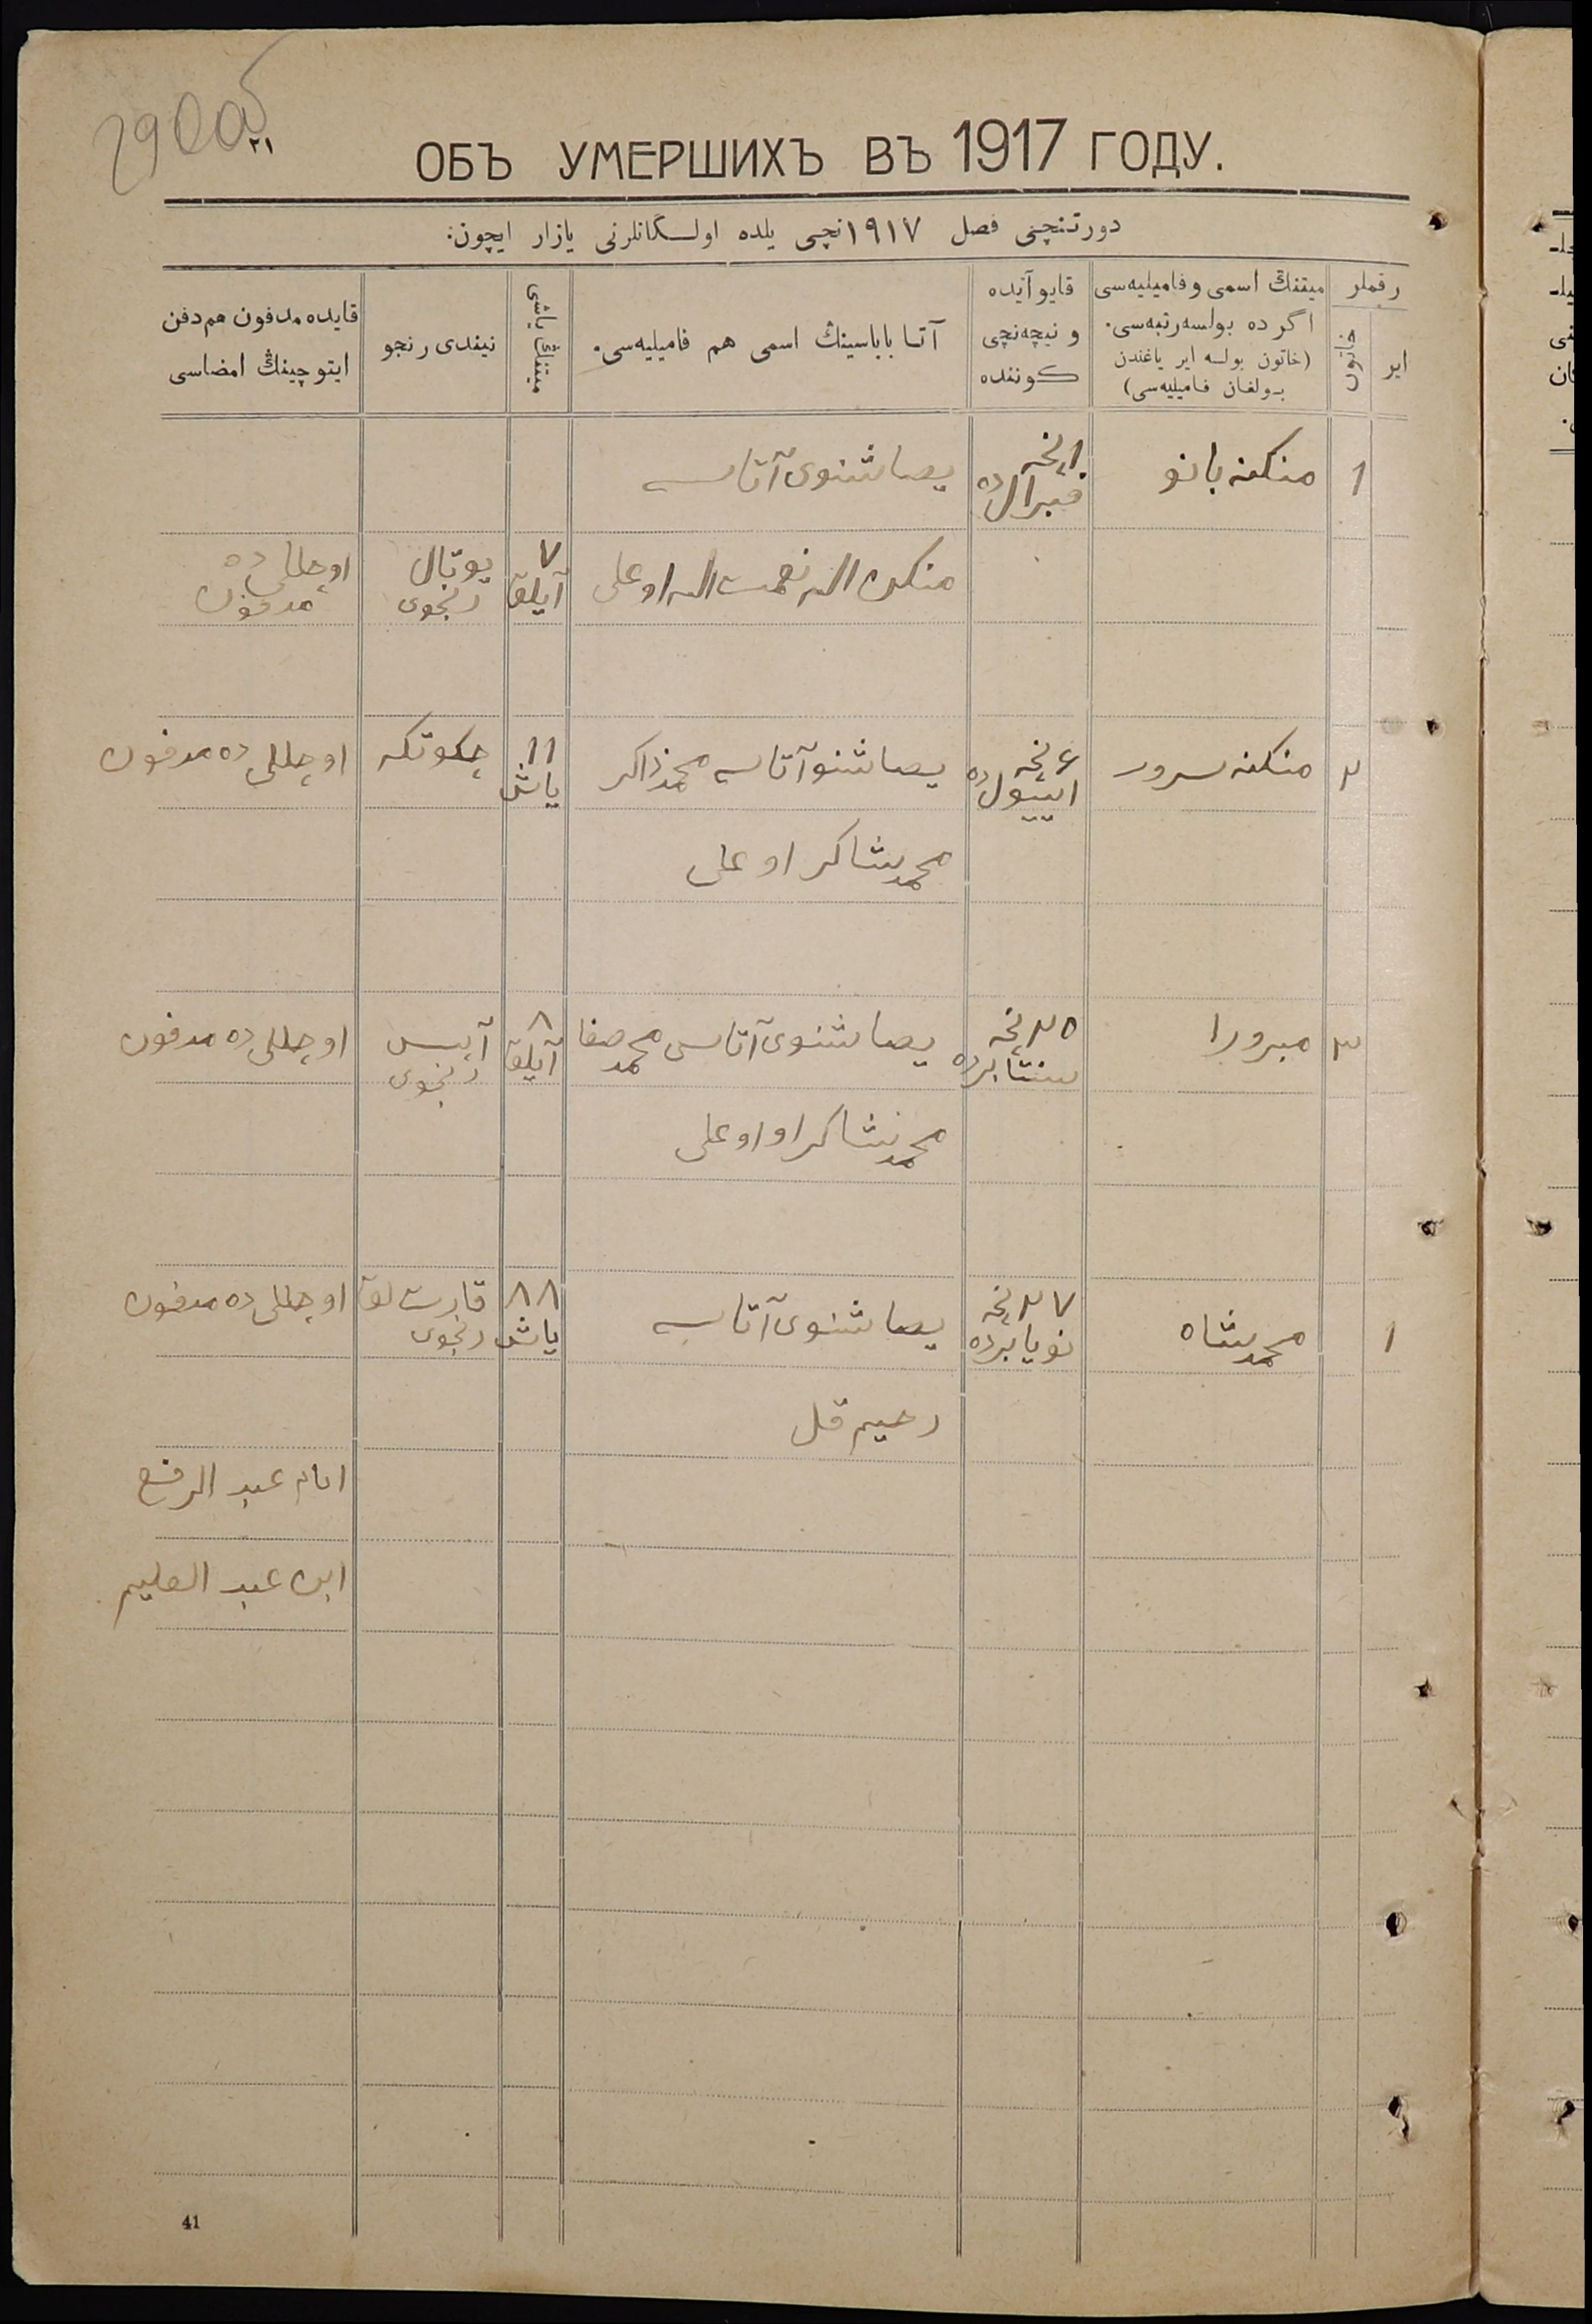 290об
٢١
ОБЪ УМЕРШИХЪ ВЪ 1917 ГОДУ.
دورتنچی فصل ١٩١٧نچی یلده اولسگانلرنی یازار ایچون:
رقملر
ایر
خاتون
میتنڭ اسمی و فامیلیه‌سی
اگر ده بولسه رتبه‌سی.
(خاتون بولسه ایر یاغندن
بولغان فامیلیه‌سی)
قایو آیده
و نیچه‌نچی
کوننده
آتا باباسینڭ اسمی هم فامیلیه‌سی.
میتنڭ یاشی
نیندی رنجو
قایده مدفون هم دفن
ایتوچینڭ امضاسی
١
منکنه بانو
فبرال ده
یصاشنوی آتاسی
نعمت الله اوغلی
٧
آیلق
یوتال
رنجوی
اوچللی ده
مدفون
٢
منکنه سرور
٤ نچه
ایییول ده
یصاشنو آتاسی محمدذاکر
محمدشاکر اوغلی
١١
یاش
چکوتکه
اوچللی ده مدفون
٣
مبرورا
٢٥ نچه
سنتابرده
یصاشنوی آتاسی محمد صفا
محمدشاکراو اوغلی
٨
آیلق
رنجوی
اوچللی ده مدفون
١
محمدشاه
٢٧ نچه
نویابرده
یصاشنوی آتاسی
رحیم قل
٨٨
یاش
قارت لق
رنجوی
اوچللی ده مدفون
امام عبد الرفیع
ابن عبد العلیم
41